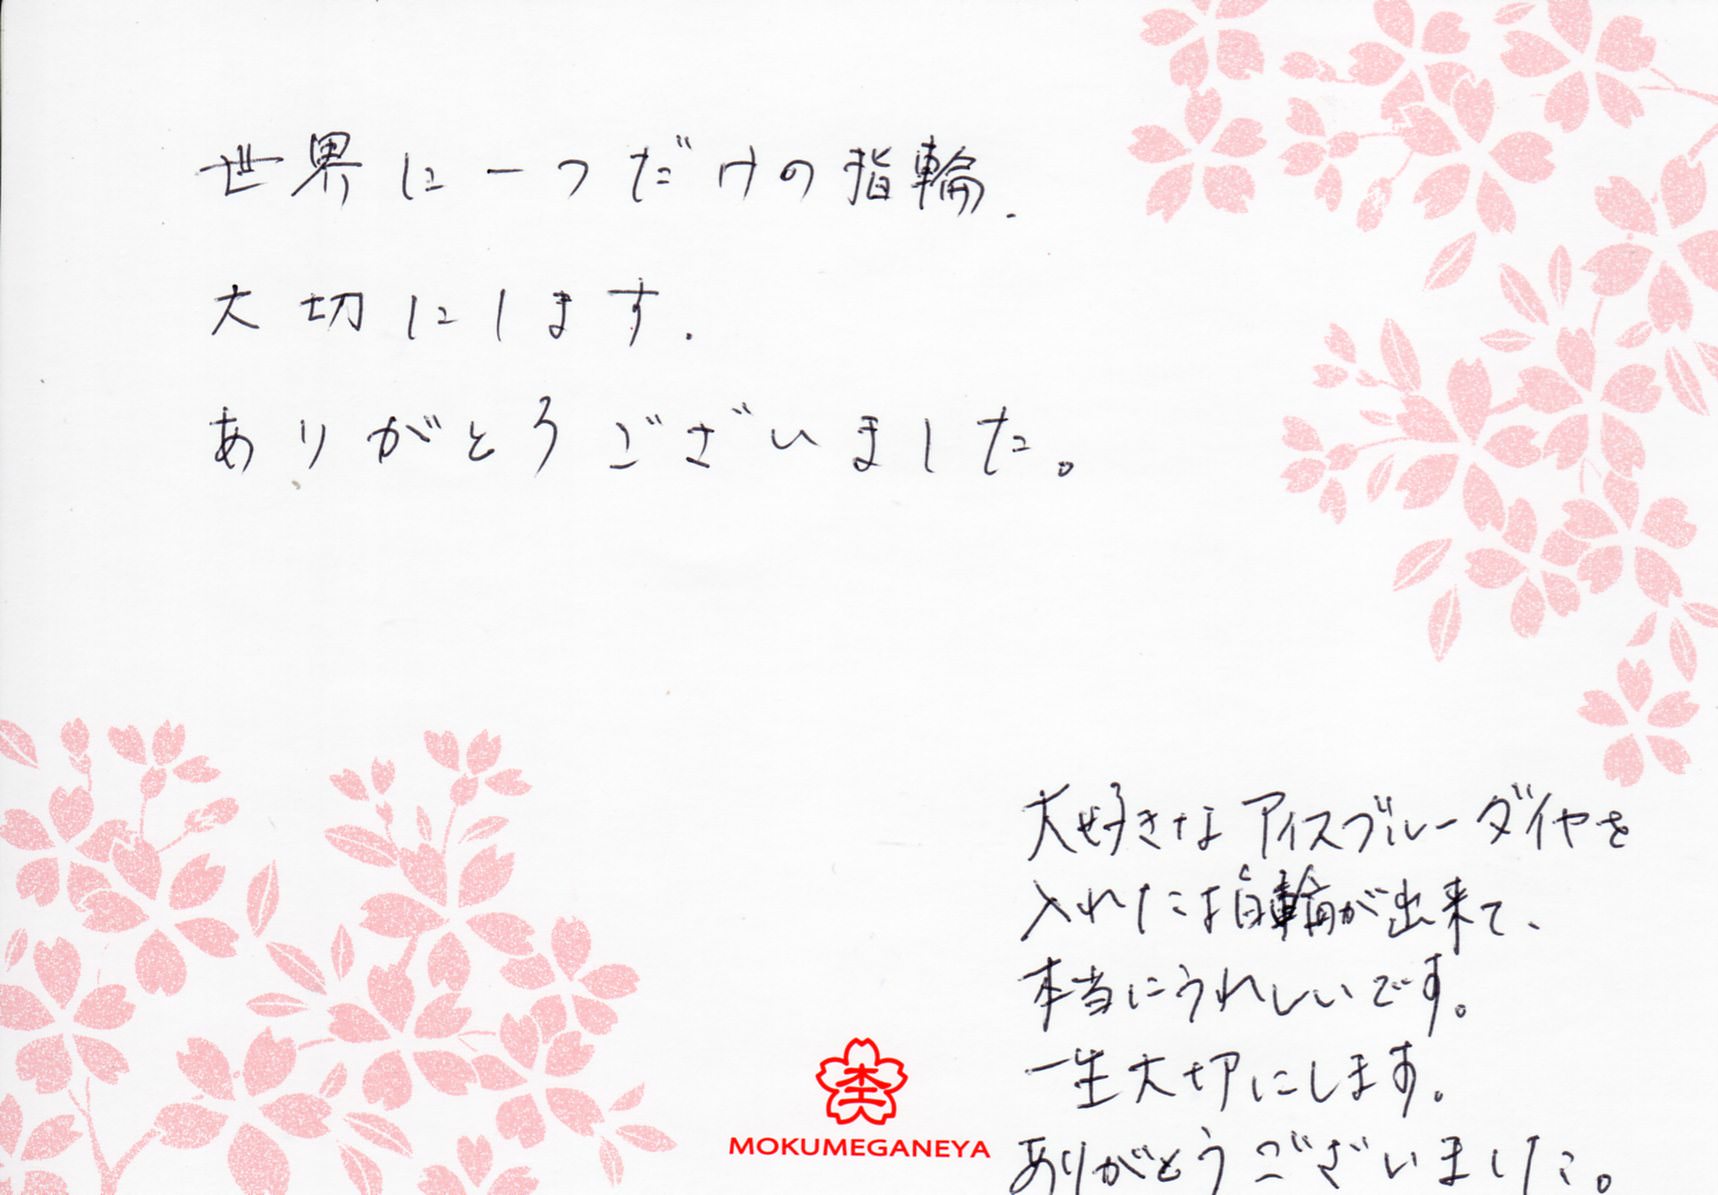 世界に一つだけの指輪.
大切にします.
ありがとうございました。
大好きなアイスブルーダイヤを
入れた指輪が出来て、
本当にうれしいです。
一生大切にします。
ありがとうございました。
杢
MOKUMEGANEYA